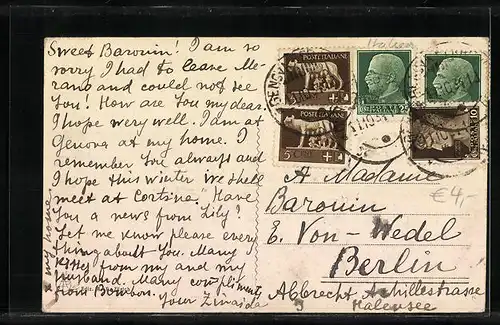 Sweet Barouin! I am so
sorry I had to leave Me-
rano and could not see
You! How are You my dear.
I hope very well. I am at
Genova at my home. I
remember You always and
I hope this winter we shell
meet at Cortina. Have
You a news from Lily?
Let me know please every
thing about You. Many
Kisses from my and my
husband. Many compliments
from Bourbon.
Your Zinaida
my home
Italien
POSTE ITALIANE
POSTE ITALIANE
5
25
10
A Madame
Barouin
E. Von-Wedel
Berlin
Albrecht Achillestrasse
Halensee
€4,-